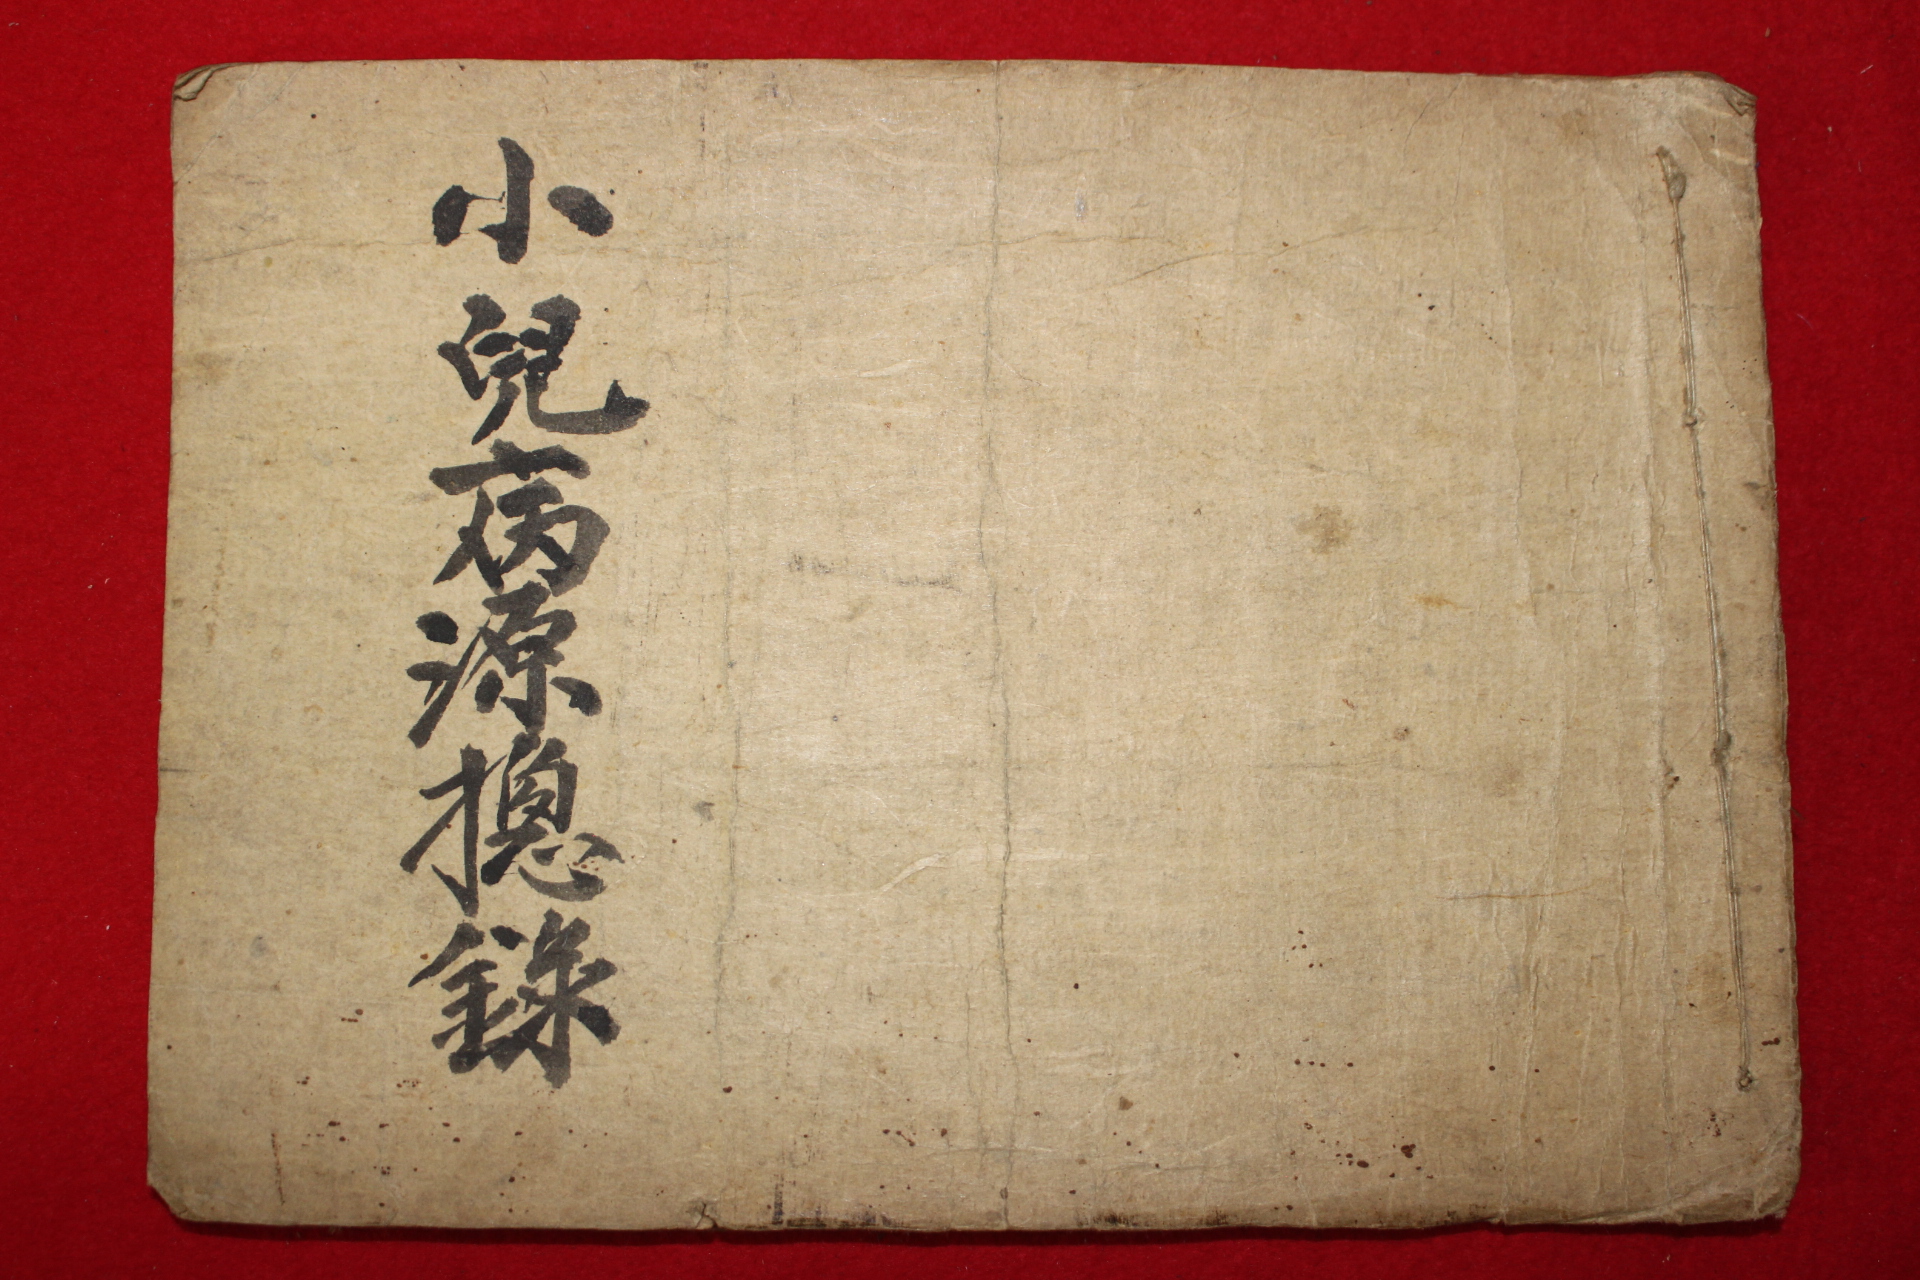 小兒病源摠錄